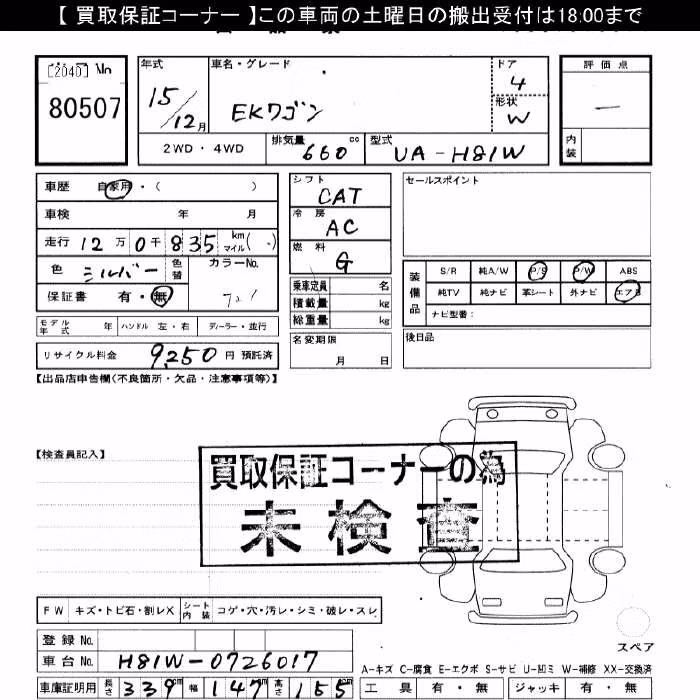 【 買取保証コーナー 】この車両の土曜日の搬出受付は18:00まで
[2040] No
80507
年式 車名・グレード ドア 評価点
15/12月 EKワゴン 4 —
形状 W
内装
2WD・4WD 排気量 660 cc 型式 UA-H81W
車歴 自家用・( )
車検 年 月
走行 12万0千835 km マイル( )
色 シルバー 色替 カラーNo.
保証書 有・無
モデル年式 年 ハンドル 左・右 ディーラー・並行
リサイクル料金 9,250 円 預託済
シフト CAT
冷房 AC
燃料 G
乗車定員 名
積載量 kg
総重量 kg
名変期限
月 日
セールスポイント
装備品 S/R 純A/W P/S P/W ABS
純TV 純ナビ 革シート 外ナビ エアB
ナビ型番：
後日品
【出品店申告欄(不良箇所・欠品・注意事項等)】
【検査員記入】
買取保証コーナーの為
未検査
FW キズ・トビ石・割レX シート内装 コゲ・穴・汚レ・シミ・破レ・スレ
登録 No.
車台 No. H81W-0726017
車庫証明用 長さ 339 cm 幅 147 cm 高さ 155 cm
スペア
A-キズ C-腐食 E-エクボ S-サビ U-凹ミ W-補修 XX-交換済
工具 有・無 ジャッキ 有・無